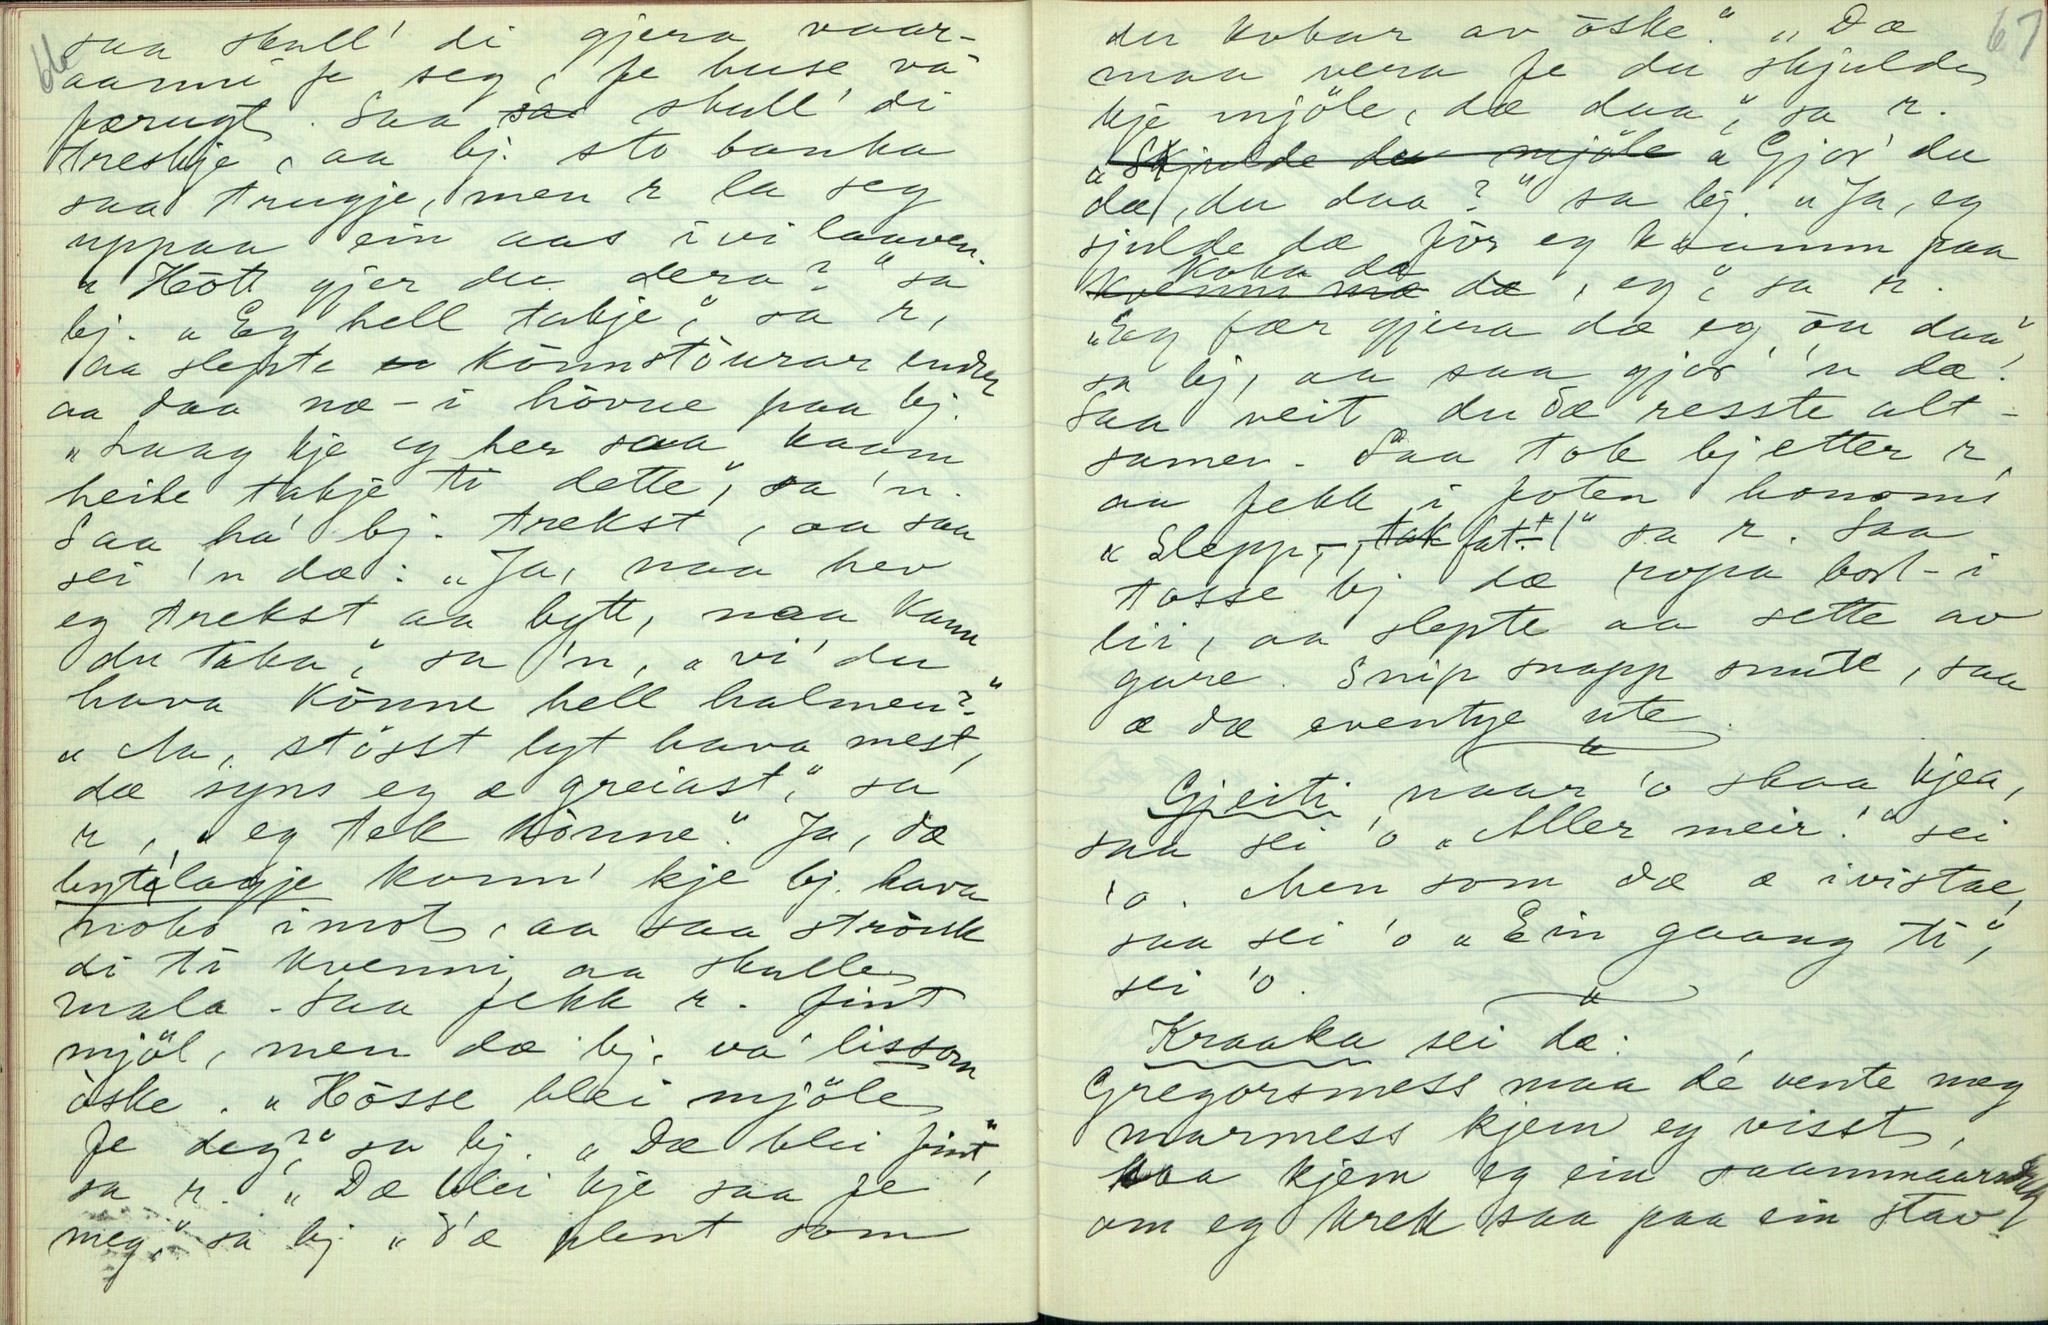 66
saa skull' di gjera vaar-
aanni fe seg, fe huse va
færugt. Saa sa skull' di
treskje, aa bj. sto banka
saa trugje, men r la seg
uppaa ein aas ivi laaven.
„Hött gjer du dera?" sa
bj. „Eg hell takje," sa r,
aa slepte en könnstöurar endre
aa daa næ-i hövue paa bj.
„Laag kje eg her saa kaam
heile takje ti dette," sa 'n.
Saa ha' bj. trekst, aa saa
sei 'n dæ: „Ja, naa hev
eg trekst aa bytt, naa kann
du taka," sa 'n, „vi' du
hava könne hell halmen?"
„Aa, stösst lyt hava mest,
dæ syns eg æ greiast," sa
r, „eg tek könne." Ja, dæ
bytelagje kunn' kje bj. hava
noko imot, aa saa strouk
di ti kvenni, aa skulle
mala. Saa fekk r. fint
mjöl, men dæ bj. va' lissom
öske. „Hösse blei mjöle
fe deg?" sa bj. „Dæ blei fint",
sa r. „Dæ blei kje saa fe
meg," sa bj „d'æ plent som
67
du kokar av öske." „Dæ
maa vera fe du skjulde
kje mjöle, dæ daa," sa r.
„Skjulde du mjöle „Gjor' du
dæ, du daa?" sa bj. „Ja, eg
sjulde dæ för eg kaamm paa
koka dæ
kvenni mæ dæ, eg," sa r.
„Eg fær gjera dæ eg öu daa"
sa bj, aa saa gjor' 'n dæ!
Saa veit du dæ resste alt-
samen. Saa tok bj etter r,
aa fekk i foten honomi
„Slepp, -, tak fat!" sa r. Saa
tosse bj dæ ropa bort-i
lii, aa slepte aa sette av
gare. Snip snapp snute, saa
æ dæ eventye ute.
Gjeiti naar 'o skaa kjea,
saa sei 'o „Aller meir!" sei
'o. Men som dæ æ ivistae,
saa sei 'o „Ein gaang ti",
sei 'o.
Kraaka sei dæ:
Gregorsmess maa dé vente meg
marmess kjem eg visst,
kaa kjem eg ein saammaarsdag
om eg krek saa paa ein stav